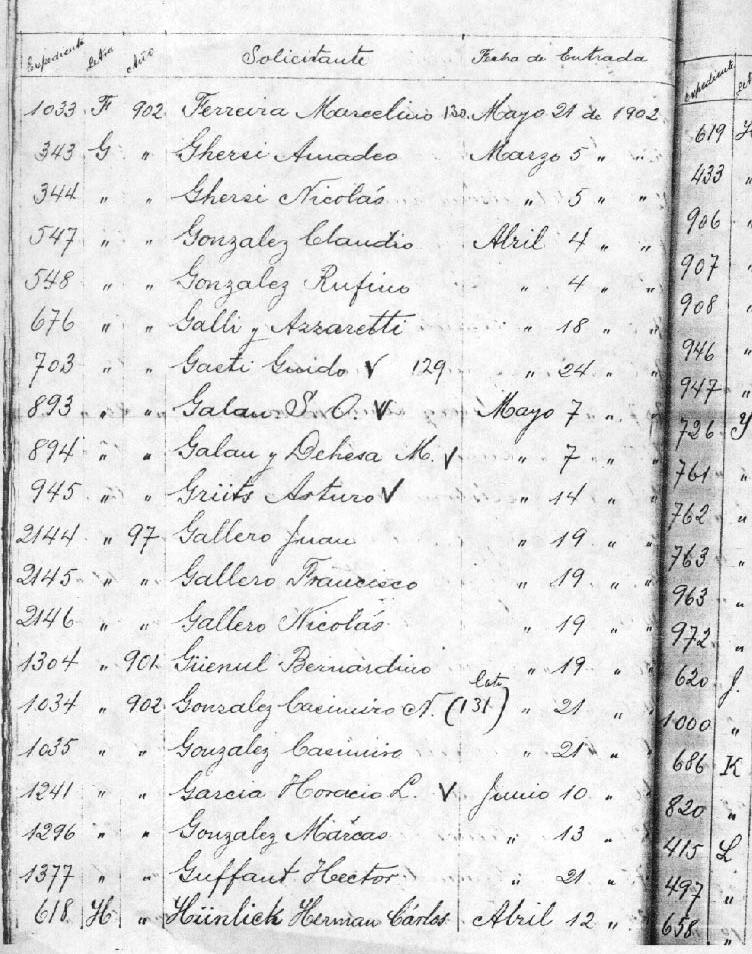 Expediente Letra Año Solicitante Fecha de Entrada
1033 F 902 Ferreira Marcelino 130. Mayo 21 de 1902
343 G " Ghersi Amadeo Marzo 5 " "
344 " " Ghersi Nicolás " 5 " "
547 " " Gonzalez Claudio Abril 4 " "
548 " " Gonzalez Rufino " 4 " "
676 " " Galli y Azzaretti " 18 " "
703 " " Gasti Guido V 129 " 24 " "
893 " " Galan S. O. V Mayo 7 " "
894 " " Galan y Dehesa M. V " 7 " "
945 " " Grüts Arturo V " 14 " "
2144 " 97 Gallero Juan " 19 " "
2145 " " Gallero Francisco " 19 " "
2146 " " Gallero Nicolás " 19 " "
1304 " 901 Güenul Bernardino " 19 " "
1034 " 902 Gonzalez Casimiro N. (131) " 21 " "
1035 " " Gonzalez Casimiro " 21 " "
1241 " " Garcia Horacio L. V Junio 10 " "
1296 " " Gonzalez Márcas " 13 " "
1377 " " Guffaut Hector " 21 " "
618 H " Hünlick Herman Cárlos Abril 12 " "
Expediente
619
433 "
906 "
907 "
908 "
946 "
947 "
726 Y
761 "
762 "
763 "
963 "
972 "
620 J.
1000 "
686 K
820 "
415 L
497 "
658 "